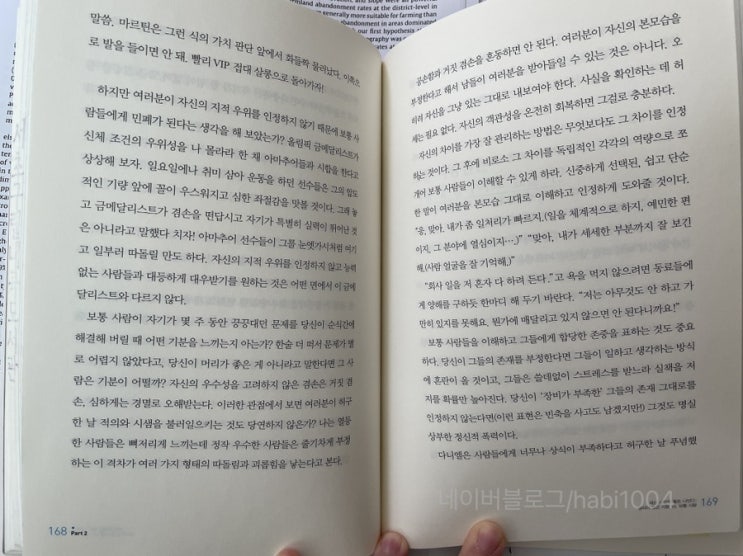 land abandonment rates at the district-level in
generally more suitable for farming than
abandonment in areas dominated
our first hypothesis
말씀. 마르틴은 그런 식의 가치 판단 앞에서 화들짝 물러났다. 이쪽으
로 발을 들이면 안 돼. 빨리 VIP 접대 살롱으로 돌아가자!
하지만 여러분이 자신의 지적 우위를 인정하지 않기 때문에 보통 사
람들에게 민폐가 된다는 생각을 해 보았는가? 올림픽 금메달리스트가
신체 조건의 우위성을 나 몰라라 한 채 아마추어들과 시합을 한다고
상상해 보자. 일요일에나 취미 삼아 운동을 하던 선수들은 그의 압도
적인 기량 앞에 꼴이 우스워지고 심한 좌절감을 맛볼 것이다. 그래 놓
고 금메달리스트가 겸손을 떤답시고 자기가 특별히 실력이 뛰어난 것
은 아니라고 말했다 치자! 아마추어 선수들이 그를 눈엣가시처럼 여기
고 일부러 따돌릴 만도 하다. 자신의 지적 우위를 인정하지 않고 능력
없는 사람들과 대등하게 대우받기를 원하는 것은 어떤 면에서 이 금메
달리스트와 다르지 않다.
보통 사람이 자기가 몇 주 동안 끙끙대던 문제를 당신이 순식간에
해결해 버릴 때 어떤 기분을 느끼는지 아는가? 한술 더 떠서 문제가 별
로 어렵지 않았다고, 당신이 머리가 좋은 게 아니라고 말한다면 그 사
람은 기분이 어떨까? 자신의 우수성을 고려하지 않은 겸손은 거짓 겸
손, 심하게는 경멸로 오해받는다. 이러한 관점에서 보면 여러분이 허구
한 날 적의와 시샘을 불러일으키는 것도 당연하지 않은가? 나는 열등
한 사람들은 뼈저리게 느끼는데 정작 우수한 사람들은 줄기차게 부정
하는 이 격차가 여러 가지 형태의 따돌림과 괴롭힘을 낳는다고 본다.
168
Part 2
공손함과 거짓 겸손을 혼동하면 안 된다. 여러분이 자신의 본모습을
부정한다고 해서 남들이 여러분을 받아들일 수 있는 것은 아니다. 오
히려 자신을 그냥 있는 그대로 내보여야 한다. 사실을 확인하는 데 허
세는 필요 없다. 자신의 객관성을 온전히 회복하면 그걸로 충분하다.
자신의 차이를 가장 잘 관리하는 방법은 무엇보다도 그 차이를 인정
하는 것이다. 그 후에 비로소 그 차이를 독립적인 각각의 역량으로 쪼
개어 보통 사람들이 이해할 수 있게 하라. 신중하게 선택된, 쉽고 단순
한 말이 여러분을 본모습 그대로 이해하고 인정하게 도와줄 것이다.
"응, 맞아, 내가 좀 일처리가 빠르지.(일을 체계적으로 하지, 예민한 편
이지, 그 분야에 열심이지…)" "맞아, 내가 세세한 부분까지 잘 보긴
해.(사람 얼굴을 잘 기억해.)"
"회사 일을 저 혼자 다 하려 든다."고 욕을 먹지 않으려면 동료들에
게 양해를 구하듯 한마디 해 두기 바란다. "저는 아무것도 안 하고 가
만히 있지를 못해요. 뭔가에 매달리고 있지 않으면 안 된다니까요!"
보통 사람들을 이해하고 그들에게 합당한 존중을 표하는 것도 중요
하다. 당신이 그들의 존재를 부정한다면 그들이 일하고 생각하는 방식
에 혼란이 올 것이고, 그들은 쓸데없이 스트레스를 받느라 실책을 저
지를 확률만 높아진다. 당신이 '장비가 부족한' 그들의 존재 그대로를
인정하지 않는다면(이런 표현은 빈축을 사고도 남겠지만!) 그것도 명실
상부한 정신적 폭력이다.
다니엘은 사람들에게 너무나 상식이 부족하다고 허구한 날 푸념했
169
네이버블로그/habi1004